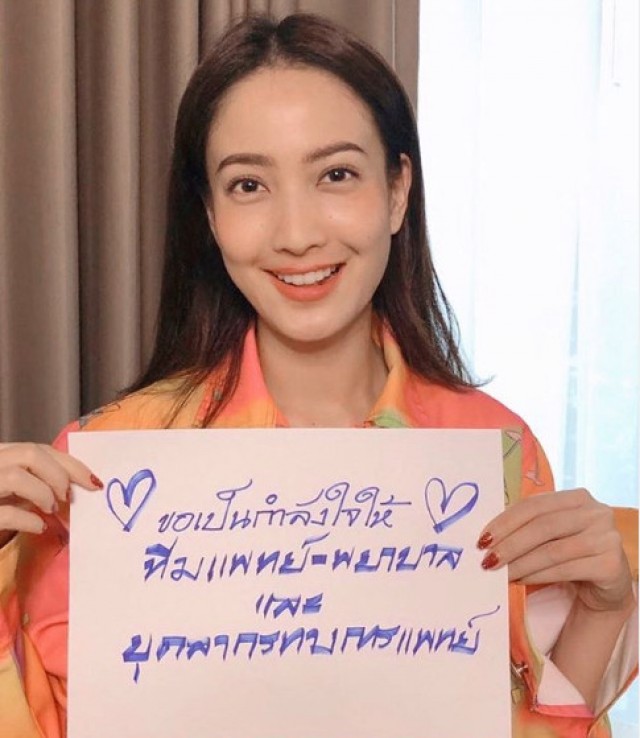 ขอเป็นกำลังใจให้
ทีมแพทย์-พยาบาล
และ
บุคลากรทางการแพทย์